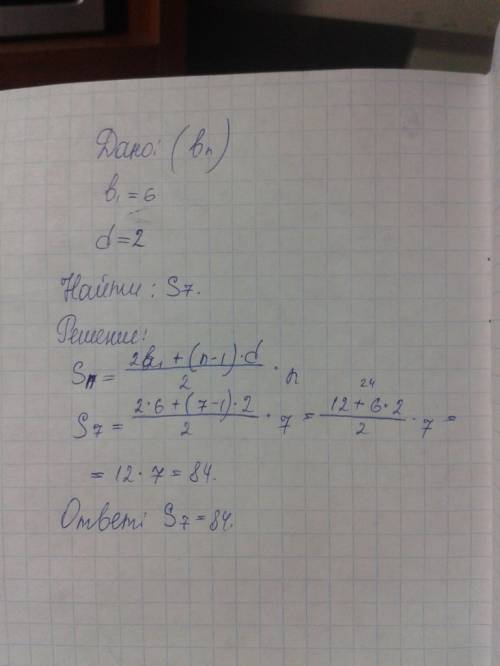 Дано: (bn)
b₁ = 6
d = 2
Найти: S7.
Решение:
Sn = (2b₁ + (n-1)·d)/2 · n
S7 = (2·6 + (7-1)·2)/2 · 7 = (12 + 6·2)/2 · 7 =
24
= 12·7 = 84.
Ответ: S7 = 84.